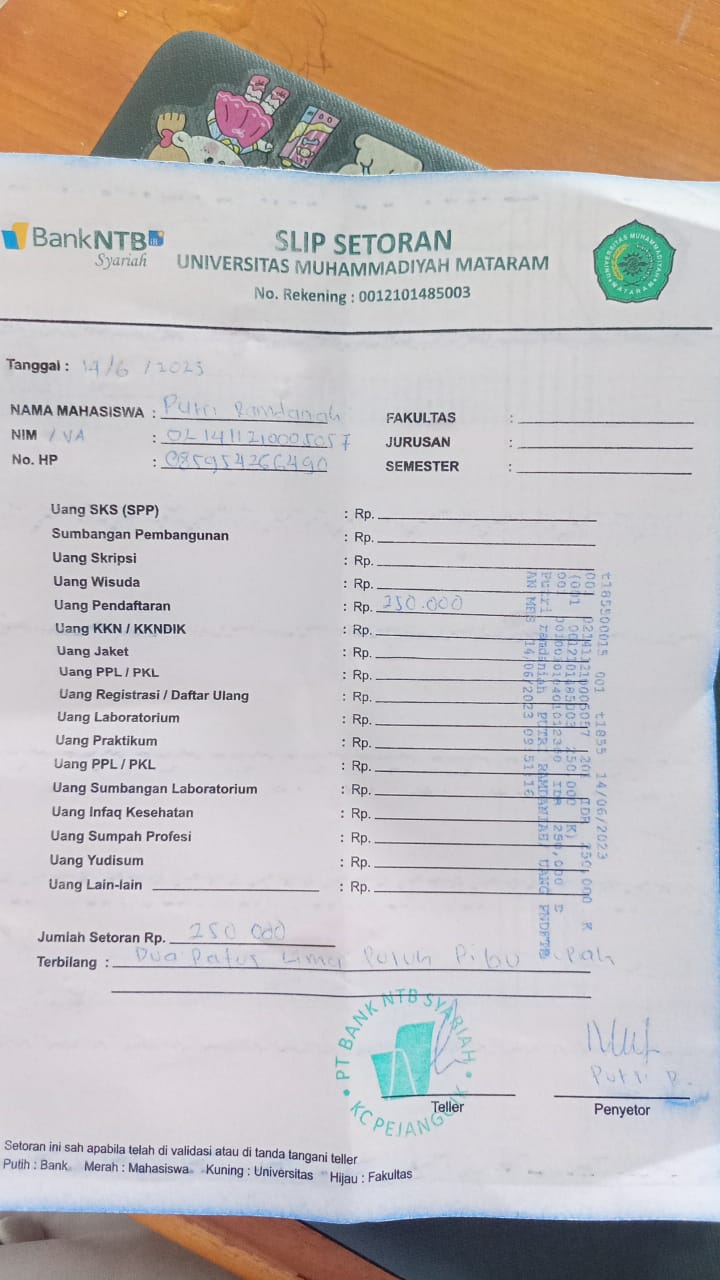 BankNTB
Syariah
SLIP SETORAN
UNIVERSITAS MUHAMMADIYAH MATARAM
No. Rekening : 0012101485003
UNIVERSITAS MUHAMMADIYAH
MATARAM
Tanggal : 14/6 / 2023
NAMA MAHASISWA : Putri Ramdanah
NIM / VA :
No. HP : 085954266490
FAKULTAS :
JURUSAN :
SEMESTER :
Uang SKS (SPP) : Rp.
Sumbangan Pembangunan : Rp.
Uang Skripsi : Rp.
Uang Wisuda : Rp.
Uang Pendaftaran : Rp. 250.000
Uang KKN / KKNDIK : Rp.
Uang Jaket : Rp.
Uang PPL / PKL : Rp.
Uang Registrasi / Daftar Ulang : Rp.
Uang Laboratorium : Rp.
Uang Praktikum : Rp.
Uang PPL / PKL : Rp.
Uang Sumbangan Laboratorium : Rp.
Uang Infaq Kesehatan : Rp.
Uang Sumpah Profesi : Rp.
Uang Yudisum : Rp.
Uang Lain-lain : Rp.
t185500015 001 t1855 14/06/2023
IDR 250,000 K
250,000 K)
IDR 250,000 D
14/06/2023 09:51:16
Jumlah Setoran Rp. 250 000
Terbilang : Dua Ratus Lima Puluh Ribu
PT BANK NTB SYARIAH
KC PEJANGGIK
Teller
Putri R.
Penyetor
Setoran ini sah apabila telah di validasi atau di tanda tangani teller
Putih : Bank Merah : Mahasiswa Kuning : Universitas Hijau : Fakultas